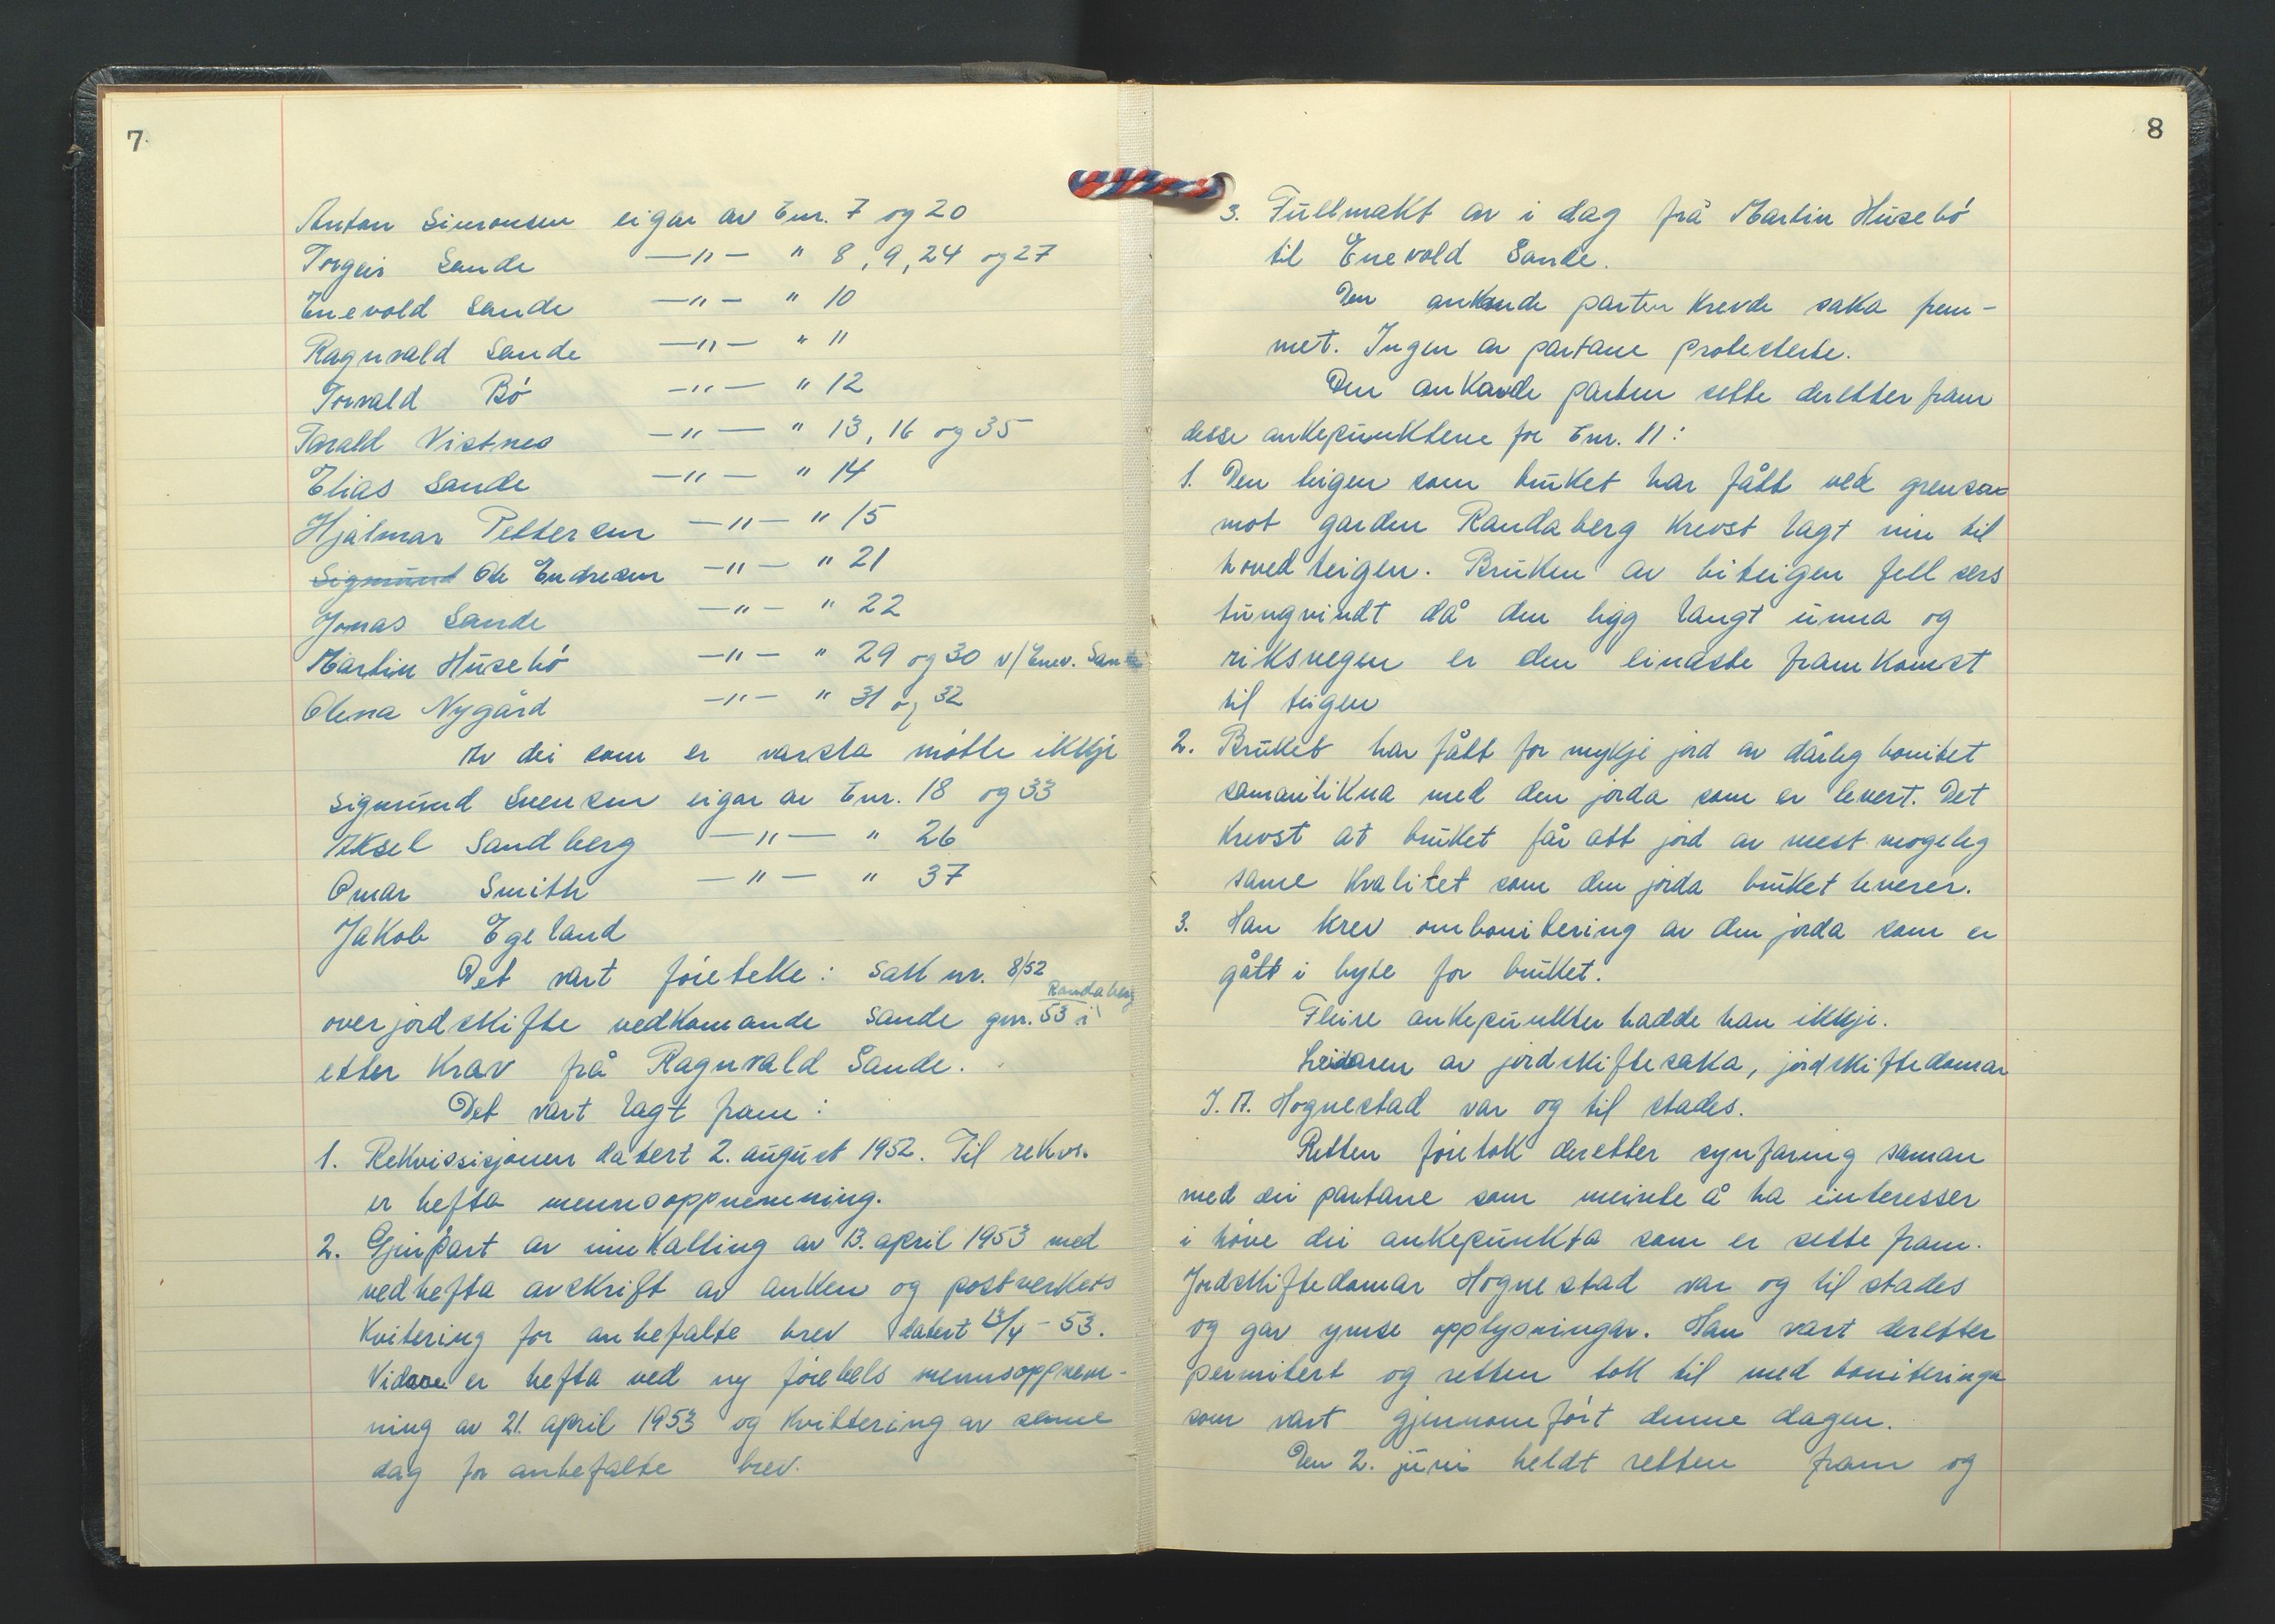 7.
Anton Simonsen eigar av bnr. 7 og 20
Torgeir Sande —"— " 8, 9, 24 og 27
Enevold Sande —"— " 10
Ragnvald Sande —"— " 11
Torvald Bö —"— " 12
Tarald Vistnes —"— " 13, 16 og 35
Elias Sande —"— " 14
Hjalmar Pettersen —"— " 15
Sigmund Ole Endresen —"— " 21
Jonas Sande —"— " 22
Martin Husebö —"— " 29 og 30 v/Enev. Sande
Olena Nygård —"— " 31 og 32
Av dei som er varsla mötte ikkje
Sigmund Svensen eigar av bnr. 18 og 33
Aksel Sandberg —"— " 26
Omar Smith —"— " 37
Jakob Egeland
Det vart företeke: Sak nr. 8/52
Randaberg
overjordskifte vedkomande Sande gnr. 53 i
etter krav frå Ragnvald Sande.
Det vart lagt fram:
1. Rekvissisjonen datert 2. august 1952. Til rekvs.
er hefta mennsoppnemning.
2. Gjenpart av innkalling av 13. april 1953 med
vedhefta avskrift av anken og postverkets
kvitering for anbefalte brev datert 13/4 - 53.
Vidare er hefta ved ny förebels mennsoppnem-
ning av 21. april 1953 og kvittering av same
dag for anbefalte brev.
8
3. Fullmakt av i dag frå Martin Husebö
til Enevold Sande.
Den ankande parten krevde saka frem-
met. Ingen av partane protesterte.
Den ankande parten sette deretter fram
desse ankepunktene for bnr. 11:
1. Den teigen som bruket har fått ved grensa
mot garden Randaberg krevst lagt inn til
hovedteigen. Bruken av biteigen fell sers
tungvindt då den ligg langt unna og
riksvegen er den einaste framkomst
til teigen
2. Bruket har fått for mykje jord av dårleg bonitet
samanlikna med den jorda som er levert. Det
krevst at bruket får att jord av mest mogeleg
same kvalitet som den jorda bruket leverer.
3. Han krev ombonitering av den jorda som er
gått i byte for bruket.
Fleire ankepunkter hadde han ikkje.
Leidaren av jordskiftesaka, jordskiftedomar
J. A. Hognestad var og til stades.
Retten företok deretter synfaring saman
med dei partane som meinte å ha interesser
i höve dei ankepunkta som er sette fram.
Jordskiftedomar Hognestad var og til stades
og gav ymse opplysningar. Han vart deretter
permitert og retten tok til med boniteringa
som vart gjennomfört denne dagen.
Den 2. juni heldt retten fram og